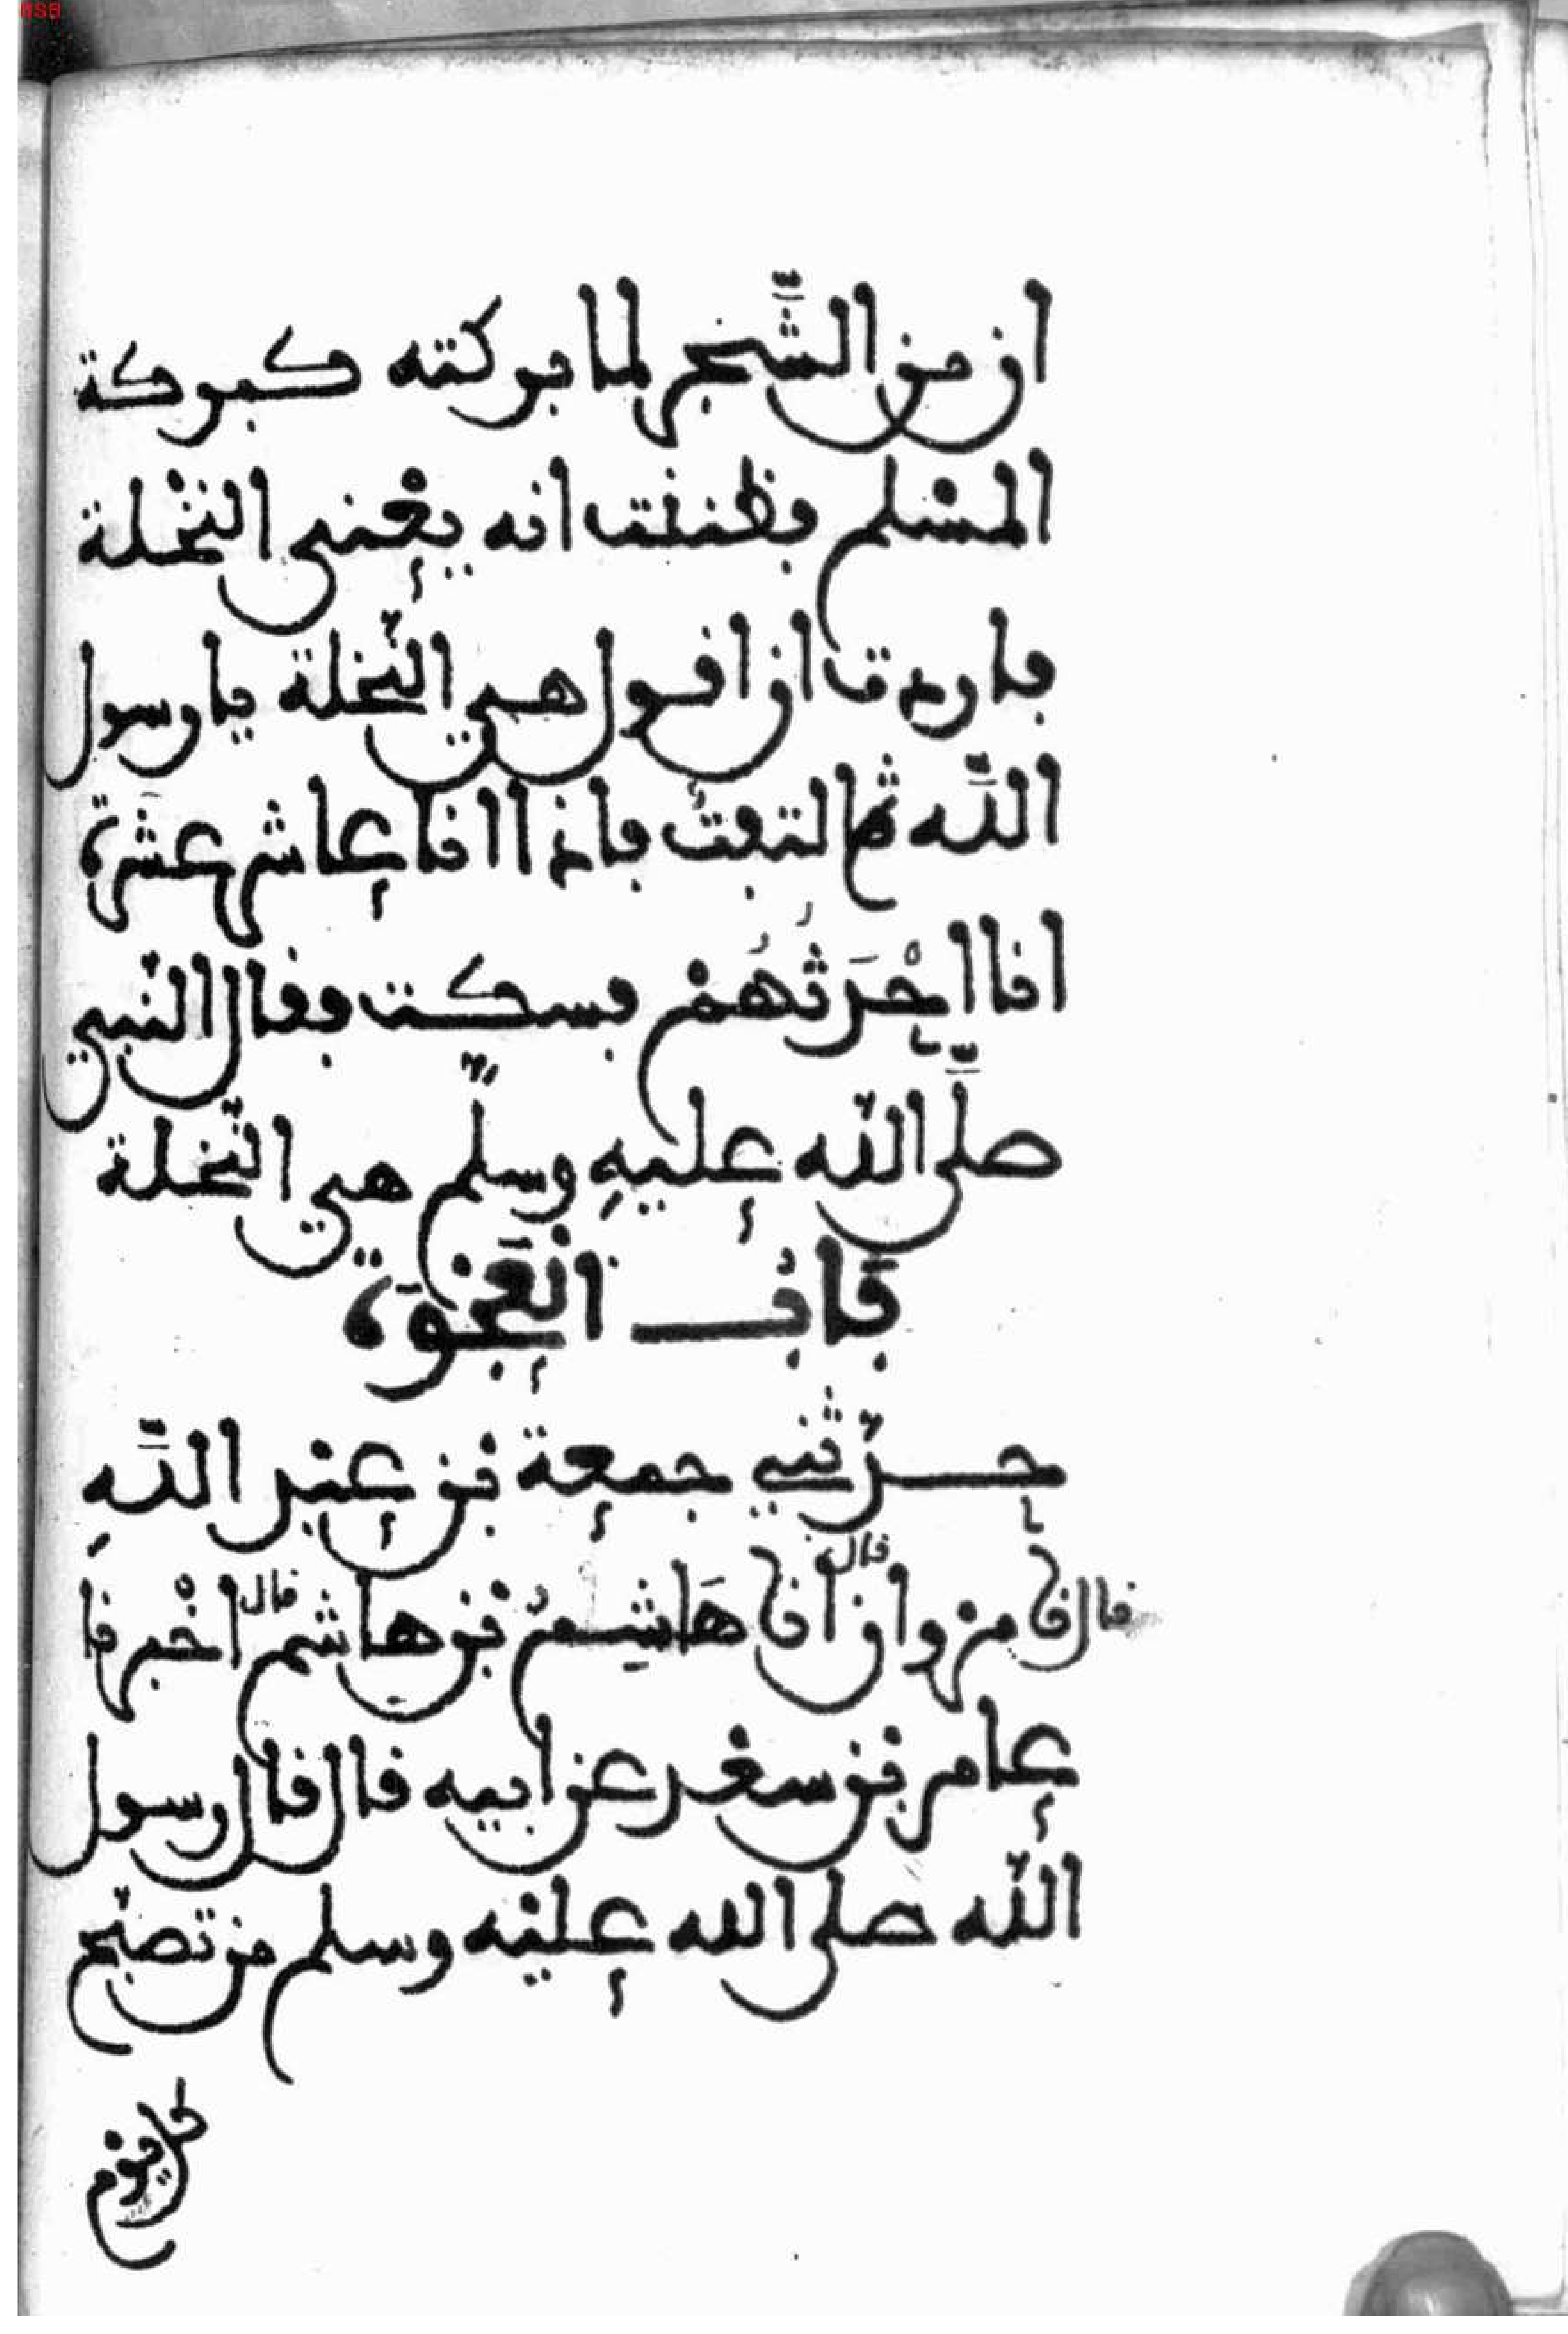 ان من الشَّجر لما بركته كبركة
المسْلم فظننت انه يعْنى النخْلة
فاردت ان اقول هي النّخلة يا رسول
اللَّه ثم التفتُّ فاذا انا عاشر عشَرة
انا احْدَثُهُمْ فسكت فقال النّبي
صلَّى اللّه عليهِ وسلّم هي النّخلة
بَابُ الْعَجْوَة
حدّثني جمعة بن عبْد اللَّهِ
قال نا مرْوان قال انا هَاشِمُ بْن هاشم قال اخْبرنا
عامر بْن سعْد عن ابيه قال قال رسول
اللّه صلى الله عليْه وسلم من تصبّح
كل يوْم